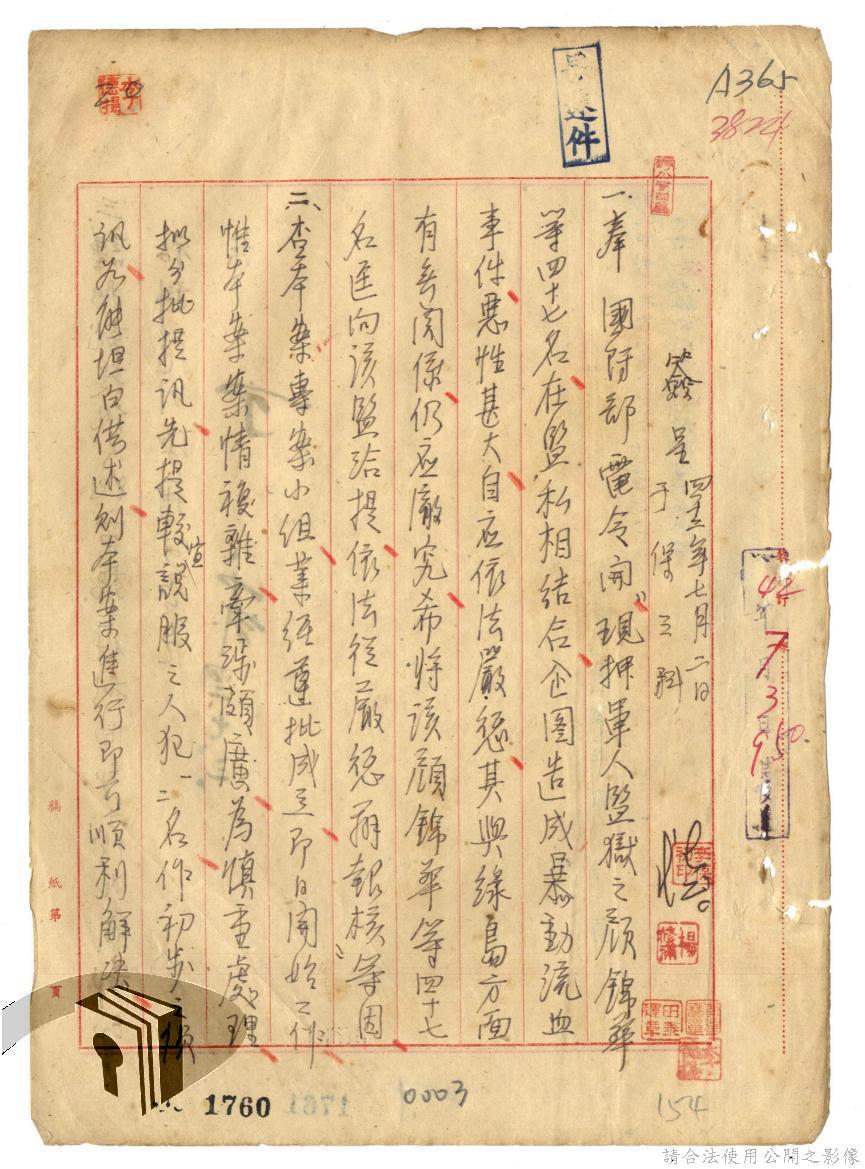 A365
3824
速件
簽呈
四五年七月二日
于保三科
一、奉 國防部電令開「現押軍人監獄之顏錦華
等四十七名在監私相結合企圖造成暴動流血
事件惡性甚大自應依法嚴懲其與綠島方面
有無關係仍應澈究希將該顏錦華等四十七
名逕向該監洽提依法從嚴懲辦報核等因」
二、查本案專案小組業經遵批成立即日開始工作
惟本案案情複雜牽涉頗廣為慎重處理
擬分批提訊先提較宜說服之人犯一二名作初步之偵
訊若能坦白供述則本案進行即可順利解決
稿紙第 頁
1760
0003
154
請合法使用公開之影像